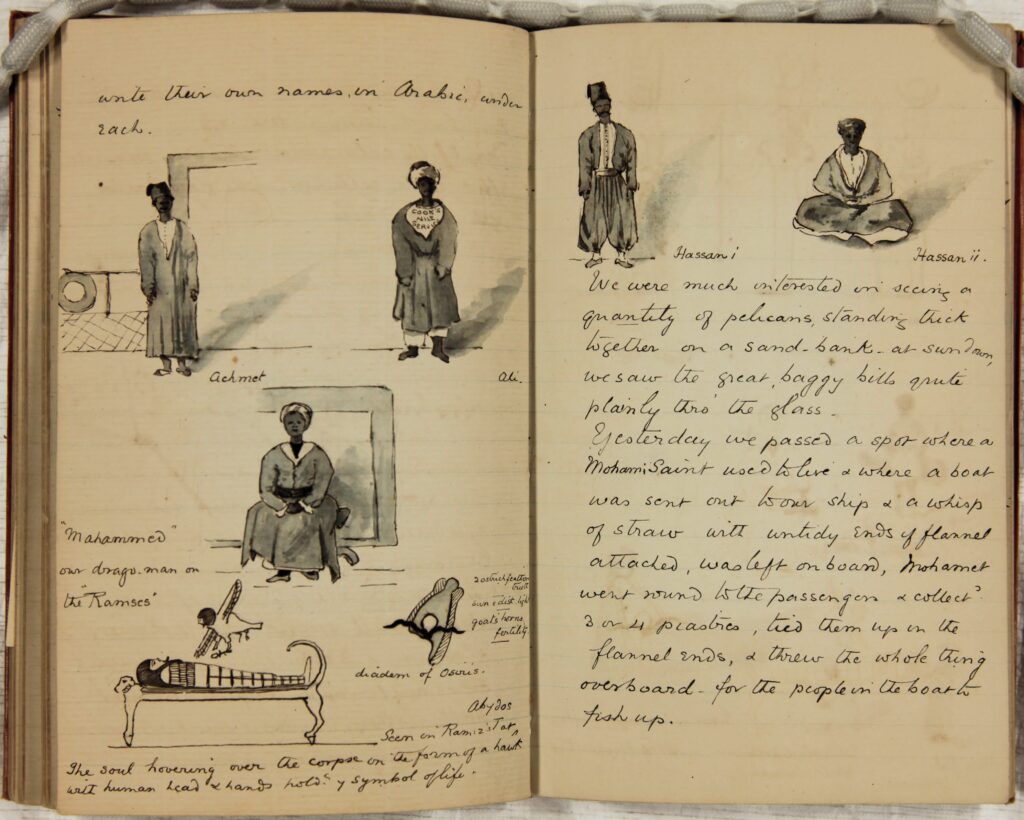 write their own names, in Arabic, under
each.
COOK'S
NILE
SERVICE
Achmet
Ali.
"Mahammed"
our drago-man on
the "Ramses"
2 ostrich feathers
truth
sun & dist. light
goat's horns
fertility
diadem of Osiris.
Abydos
Seen in Ram: 2's T at
The soul hovering over the corpse in the form of a hawk
with human head & hands hold.g symbol of life.
Hassan i
Hassan ii.
We were much interested in seeing a
quantity of pelicans, standing thick
together on a sand-bank - at sundown,
we saw the great, baggy bills quite
plainly thro' the glass -
Yesterday we passed a spot where a
Moham: Saint used to live & where a boat
was sent out to our ship & a whisp
of straw with untidy ends of flannel
attached, was left on board, Mohamet
went round to the passengers & collect.d
3 or 4 piastres, tied them up in the
flannel ends, & threw the whole thing
overboard - for the people in the boat to
fish up.